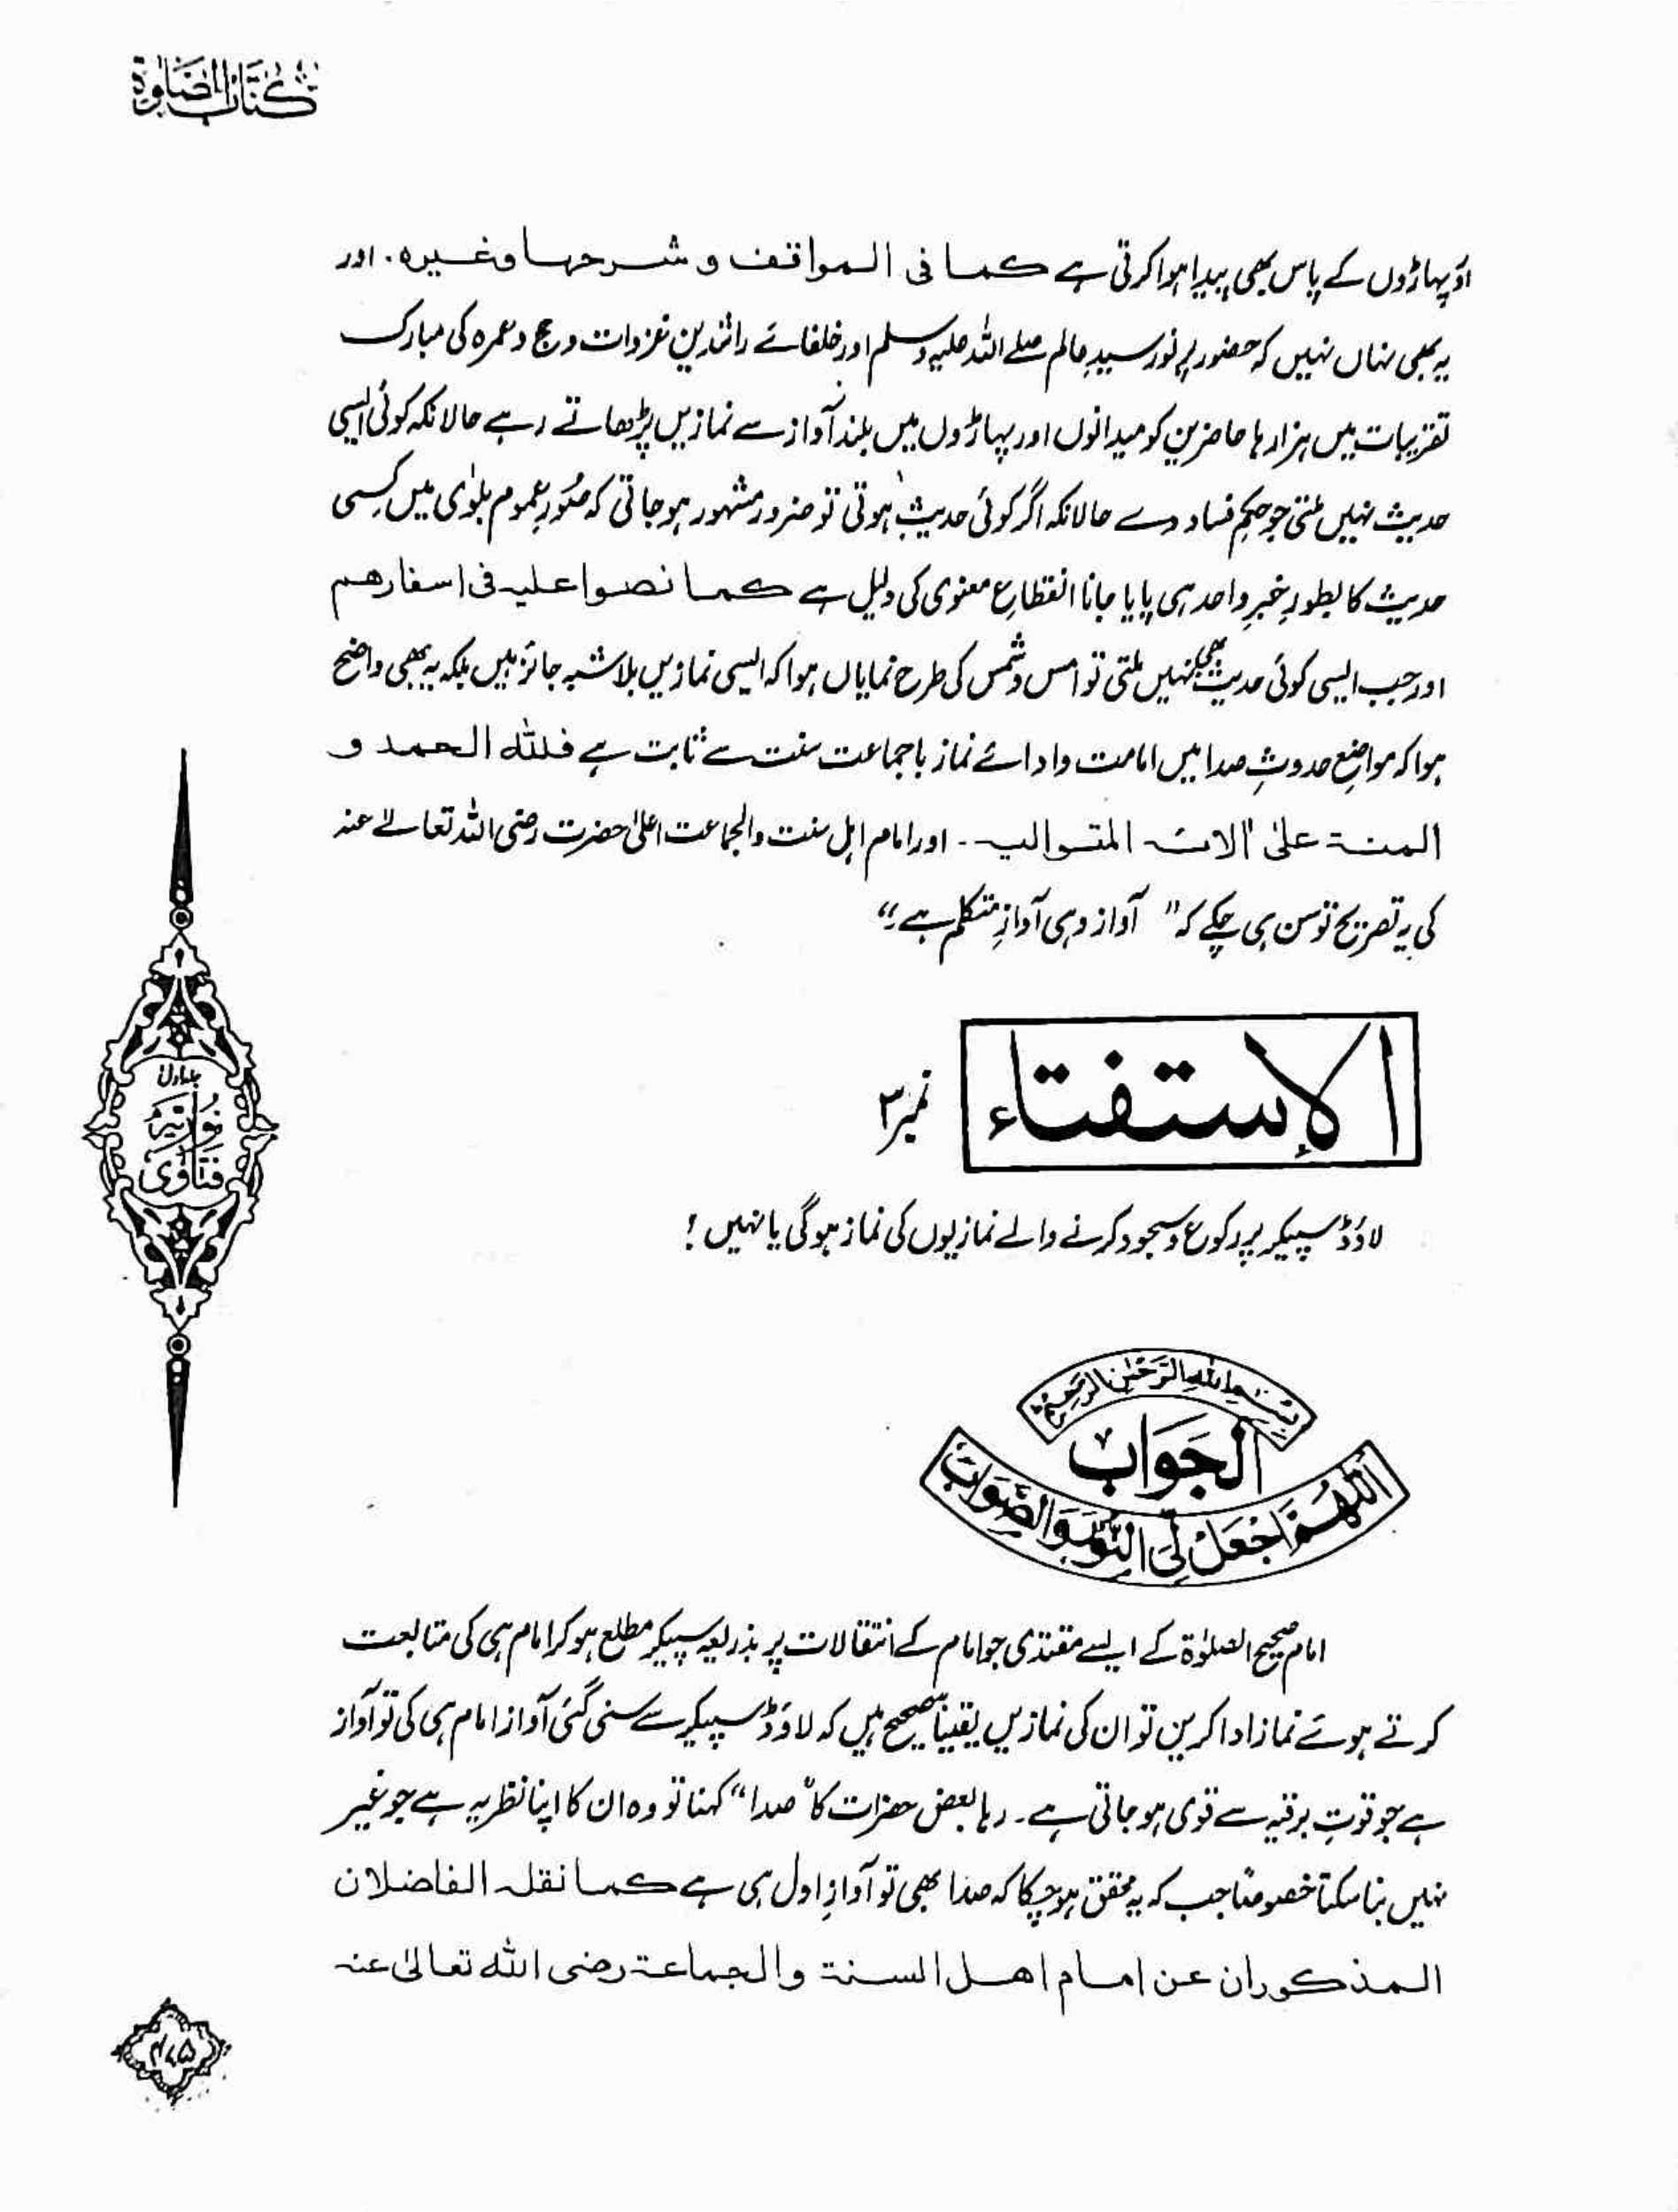 كتاب الصلوة
اور پہاڑوں کے پاس بھی پیدا ہوا کرتی ہے كما فى المواقف و شرحها وغيره. اور
یہ بھی نہاں نہیں کہ حضور پر نور سید عالم صلے اللہ علیہ وسلم اور خلفائے راشدین غزوات و حج و عمرہ کی مبارک
تقریبات میں ہزار ہا حاضرین کو میدانوں اور پہاڑوں میں بلند آواز سے نمازیں پڑھاتے رہے حالانکہ کوئی ایسی
حدیث نہیں ملتی جو حکم فساد دے حالانکہ اگر کوئی حدیث ہوتی تو ضرور مشہور ہو جاتی کہ صُوَرِ عموم بلوٰی میں کسی
حدیث کا بطورِ خبرِ واحد ہی پایا جانا انقطاعِ معنوی کی دلیل ہے كما نصوا عليه فى اسفارهم
اور جب ایسی کوئی حدیث بھی نہیں ملتی تو امس و شمس کی طرح نمایاں ہوا کہ ایسی نمازیں بلاشبہ جائز ہیں بلکہ یہ بھی واضح
ہوا کہ مواضعِ حدوثِ صدا میں امامت و ادائے نماز باجماعت سنت سے ثابت ہے فلله الحمد و
المنة علىٰ آلائه المتواليه ۔ اور امام اہل سنت والجماعت اعلیٰ حضرت رضی اللہ تعالےٰ عنہ
کی یہ تصریح تو سن ہی چکے کہ ” آواز وہی آوازِ متکلم ہے“
الإستفتاء نمبر ۳
لاؤڈ سپیکر پر رکوع و سجود کرنے والے نمازیوں کی نماز ہوگی یا نہیں ؟
بسم الله الرحمٰن الرحيم
الجَوَابُ
اللّٰهُمَّ اجْعَلْ لِّيَ النُّوْرَ وَالصَّوَابَ
امام صحیح الصلوٰۃ کے ایسے مقتدی جو امام کے انتقالات پر بذریعہ سپیکر مطلع ہو کر امام ہی کی متابعت
کرتے ہوئے نماز ادا کریں تو ان کی نمازیں یقیناً صحیح ہیں کہ لاؤڈ سپیکر سے سنی گئی آواز امام ہی کی تو آواز
ہے جو قوتِ برقیہ سے قوی ہو جاتی ہے۔ رہا بعض حضرات کا ”صدا“ کہنا تو وہ ان کا اپنا نظریہ ہے جو غیر
نہیں بنا سکتا خصوصًا جب کہ یہ محقق ہو چکا کہ صدا بھی تو آوازِ اول ہی ہے كما نقله الفاضلان
المذكوران عن امام اهل السنة والجماعة رضى الله تعالىٰ عنه
جلد اول
نوریہ
فتاوٰی
۴۷۵